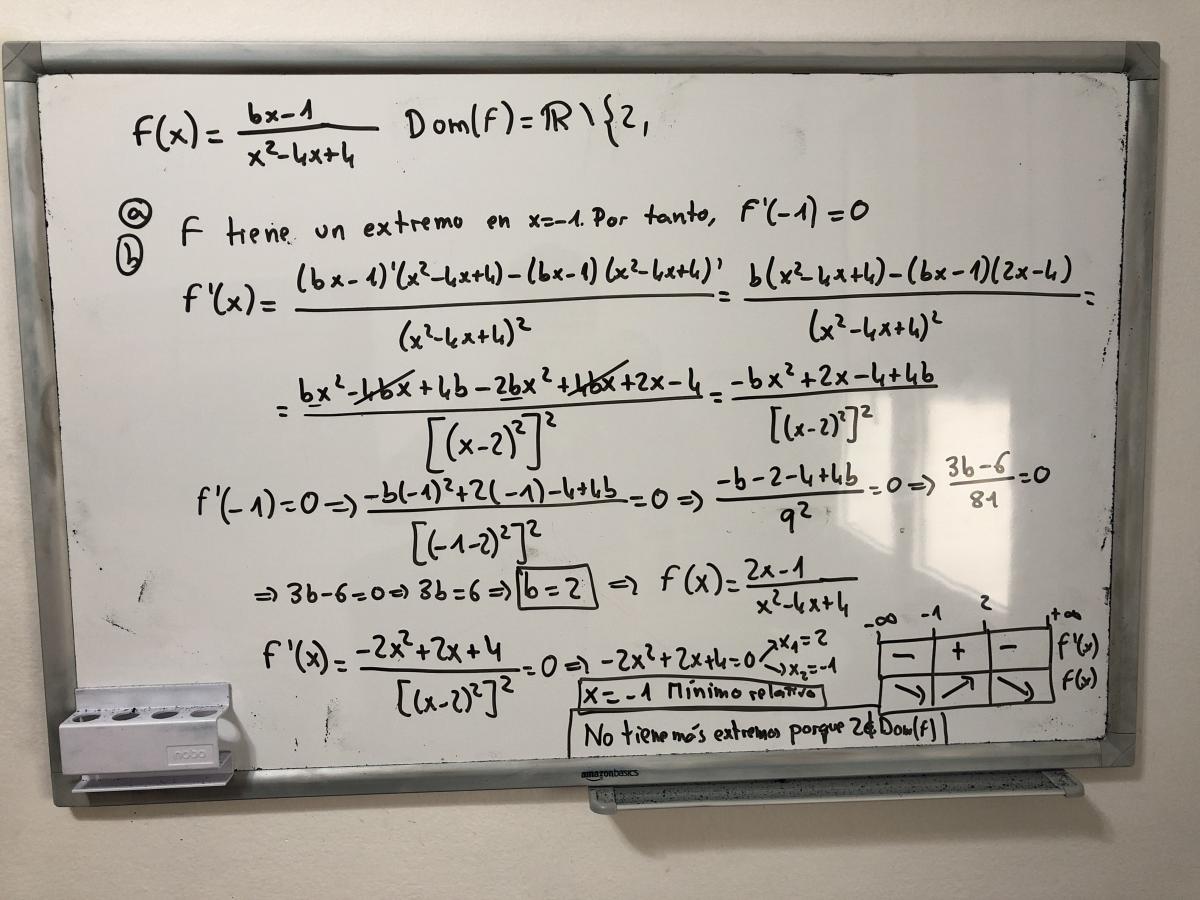 f(x) = (bx-1)/(x²-4x+4) Dom(f) = ℝ \ {2,
ⓐ
ⓑ
F tiene un extremo en x=-1. Por tanto, F'(-1) = 0
f'(x) = ((bx-1)'(x²-4x+4) - (bx-1)(x²-4x+4)')/(x²-4x+4)² = (b(x²-4x+4) - (bx-1)(2x-4))/(x²-4x+4)² =
= (bx²-4bx+4b-2bx²+4bx+2x-4)/[(x-2)²]² = (-bx²+2x-4+4b)/[(x-2)²]²
f'(-1) = 0 ⇒ (-b(-1)²+2(-1)-4+4b)/[(-1-2)²]² = 0 ⇒ (-b-2-4+4b)/9² = 0 ⇒ (3b-6)/81 = 0
⇒ 3b-6=0 ⇒ 3b=6 ⇒ b=2 ⇒ f(x) = (2x-1)/(x²-4x+4)
f'(x) = (-2x²+2x+4)/[(x-2)²]² = 0 ⇒ -2x²+2x+4=0 ↗ x₁=2 ↘ x₂=-1
-∞ -1 2 +∞
- + - f'(x)
↘ ↗ ↘ f(x)
x=-1 Mínimo relativo
No tiene más extremos porque 2∉Dom(f)
nobo
amazonbasics